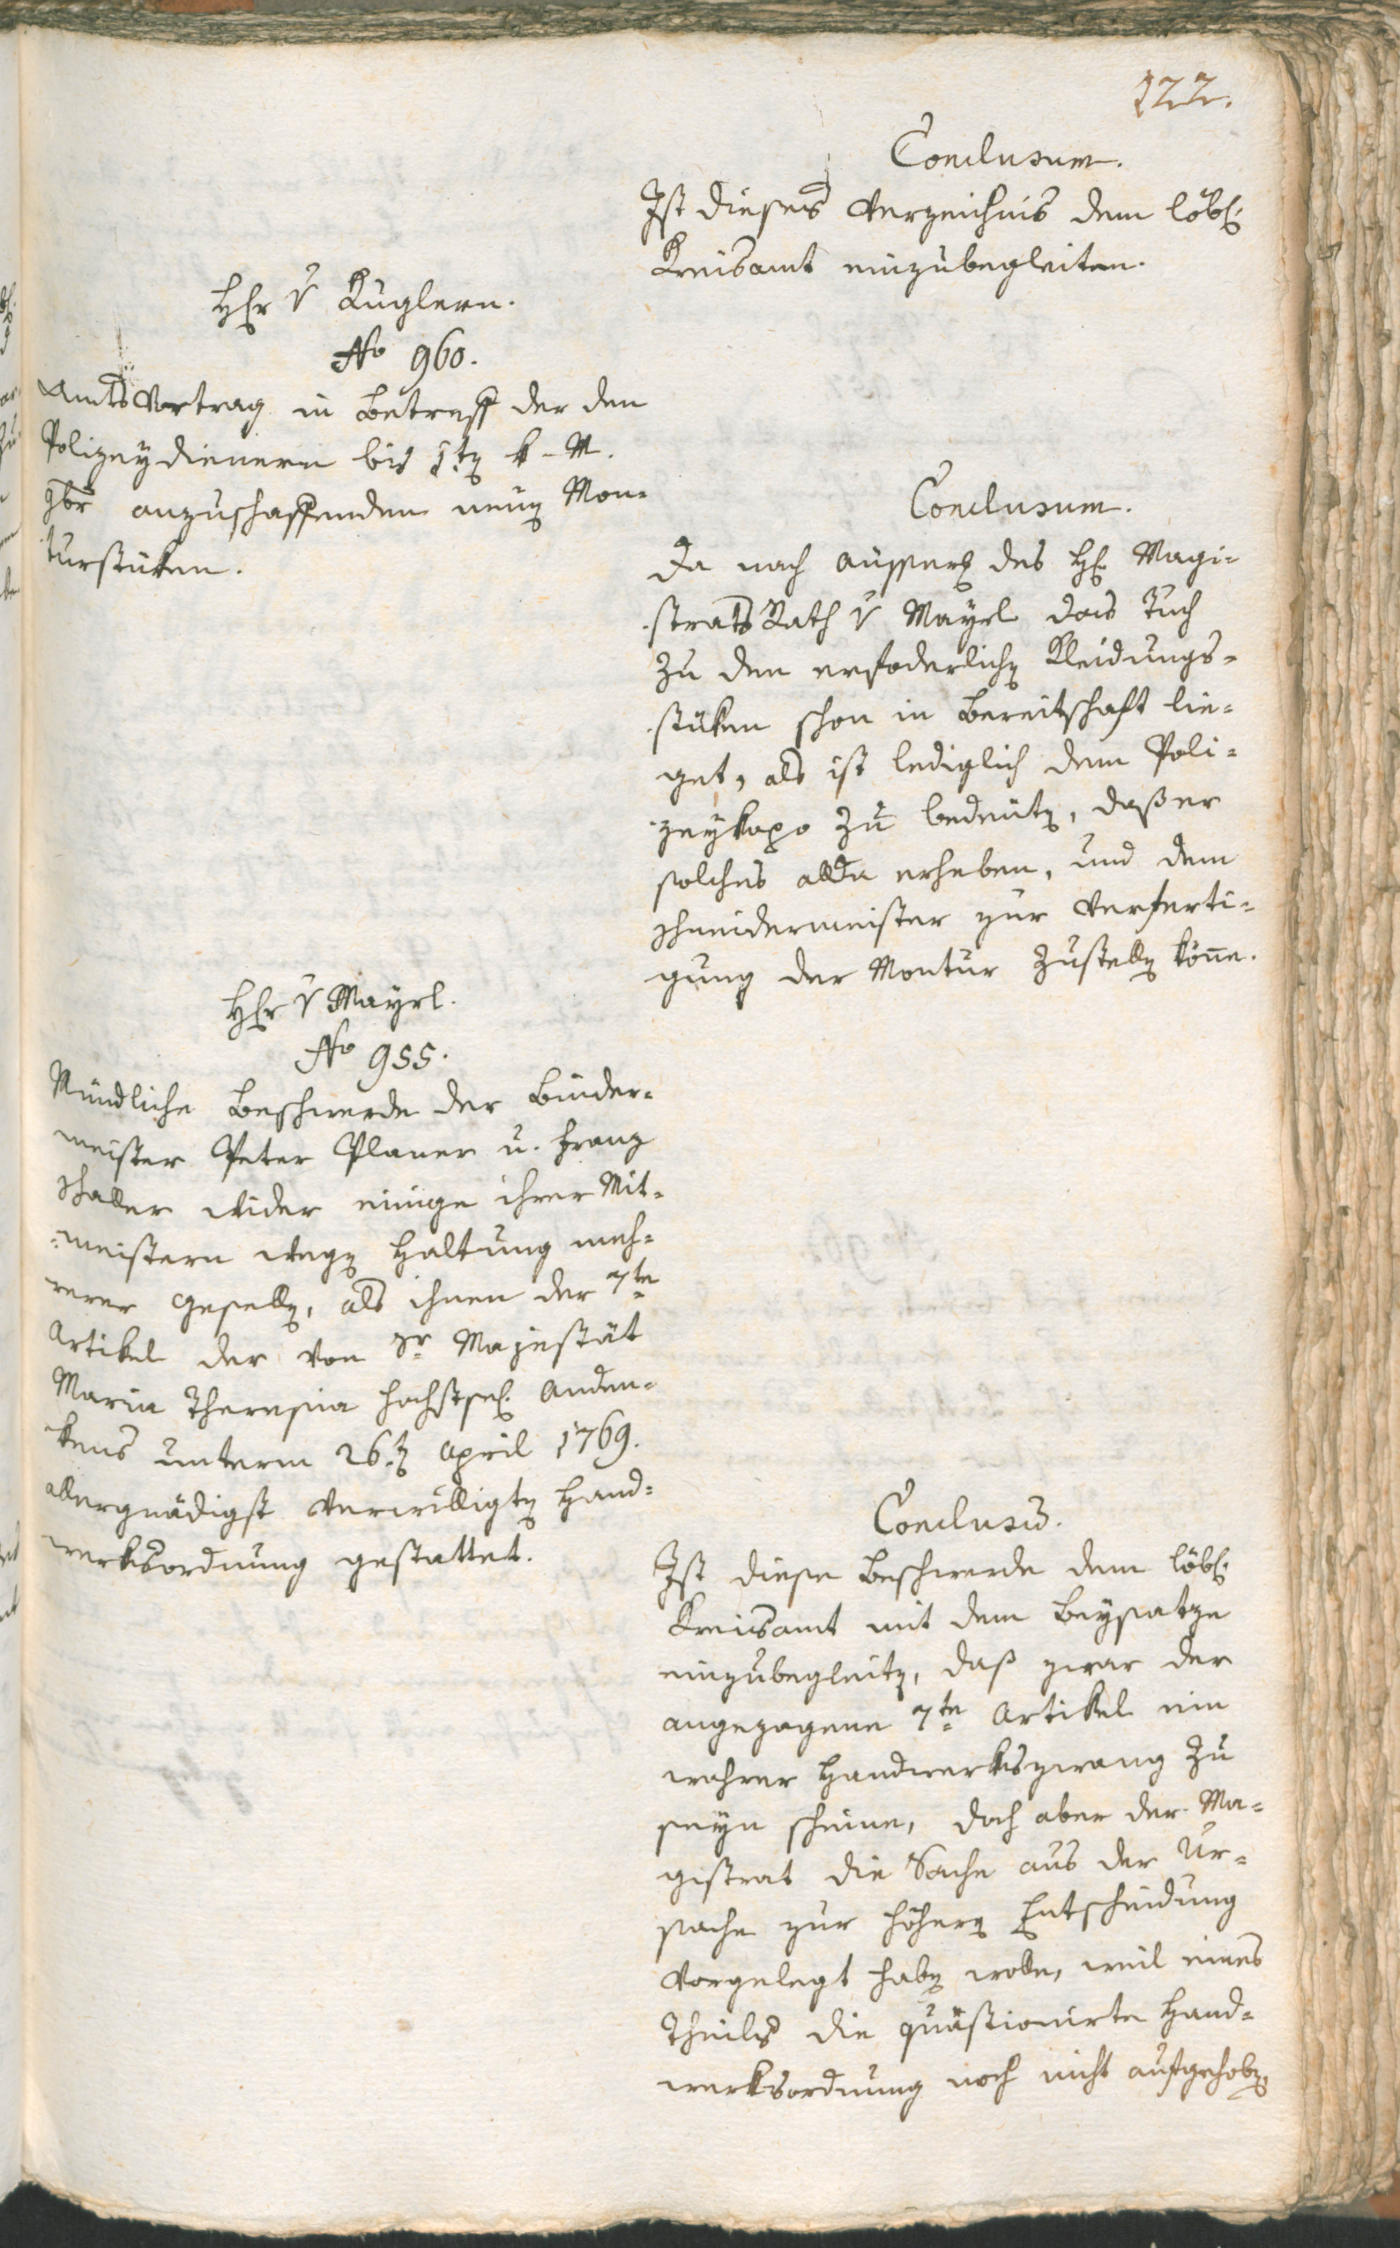 122.
Conclusum.
Ist dieses Verzeichnis dem löbl:
Kreisamt einzubegleiten.
Hr v Kuglern.
No 960.
AmtsVortrag in Betreff der den
Polizeydienern bis 1ten k. M.
9br anzuschaffenden neuen Mon¬
turstüken.
Conclusum.
Da nach äusserg des H: Magi¬
stratsRath v Mayrl das Tuch
zu den erfoderlichen Kleidungs¬
stüken schon in Bereitschaft lie¬
get, als ist lediglich dem Poli¬
zeykapo zu bedeuten, daß er
solches allda erheben, und dem
Schneidermeister zur Verferti¬
gung der Montur zustellen könne.
Hr v Mayrl.
No 955.
Mündliche Beschwerde der Binder¬
meister Peter Planer u. Franz
Haller wider einige ihrer Mit¬
meistern wegen Haltung meh¬
rerer Gesellen, als ihnen der 7te
Artikel der von Sr Majestät
Maria Theresia höchstsel: Anden¬
kens unterm 26ten April 1769.
allergnädigst verwilligten Hand¬
werksordnung gestattet.
Conclusum.
Ist diese Beschwerde dem löbl:
Kreisamt mit dem Beysatze
einzubegleiten, daß zwar der
angezogene 7te Artikel ein
wahrer Handwerkszwang zu
seyn scheine, doch aber der Ma¬
gistrat die Sache aus der Ur¬
sache zur höheren Entscheidung
vorgelegt haben wolle, weil eines
Theils die quästionirte Hand¬
werksordnung noch nicht aufgehoben